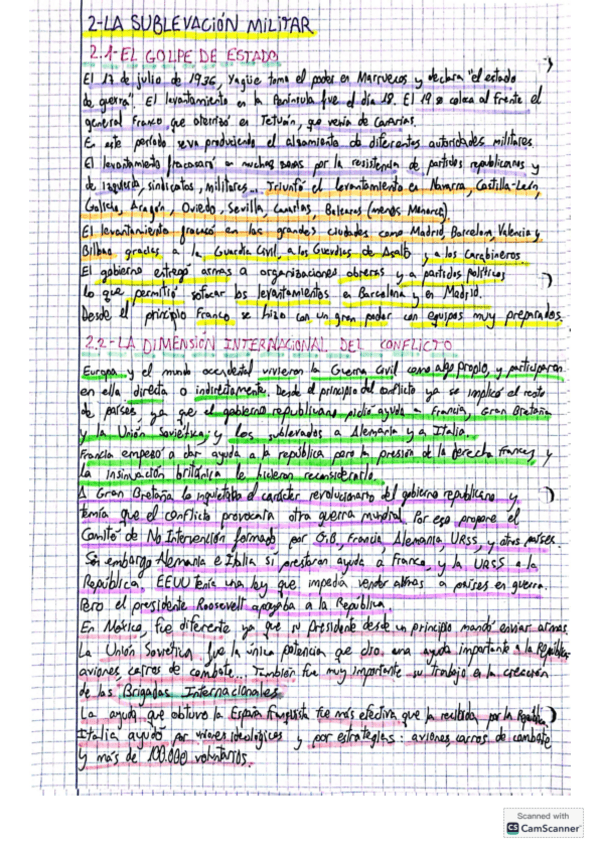 2-LA SUBLEVACIÓN MILITAR
2.1-EL GOLPE DE ESTADO
El 17 de julio de 1936, Yagüe toma el poder en Marruecos y declara "el estado
de guerra". El levantamiento en la Península fue el día 18. El 19 se coloca al frente el
general Franco que aterrizó en Tetuán, que venía de Canarias.
En este período se va produciendo el alzamiento de diferentes autoridades militares.
El levantamiento fracasará en muchas zonas por la resistencia de partidos republicanos y
de izquierda, sindicatos, militares... Triunfó el levantamiento en Navarra, Castilla-León,
Galicia, Aragón, Oviedo, Sevilla, Canarias, Baleares (menos Menorca).
El levantamiento fracasó en las grandes ciudades como Madrid, Barcelona, Valencia y
Bilbao gracias a la Guardia Civil, a los Guardias de Asalto y a los Carabineros.
El gobierno entregó armas a organizaciones obreras y a partidos políticos
lo que permitió sofocar los levantamientos en Barcelona y en Madrid.
Desde el principio Franco se hizo con un gran poder con equipos muy preparados.
2.2-LA DIMENSIÓN INTERNACIONAL DEL CONFLICTO
Europa y el mundo occidental vivieron la Guerra Civil como algo propio, y participaron
en ella directa o indirectamente. Desde el principio del conflicto ya se implicó el resto
de países ya que el gobierno republicano pidió ayuda a Francia, Gran Bretaña
y la Unión Soviética; y los sublevados a Alemania y a Italia.
Francia empesó a dar ayuda a la república pero la presión de la derecha francesa y
la insinuación británica le hicieron reconsiderarlo.
A Gran Bretaña le inquietaba el carácter revolucionario del gobierno republicano y
temía que el conflicto provocara otra guerra mundial. Por eso propone el
Comité de No Intervención formado por G.B, Francia, Alemania, URSS y otros países.
Sin embargo Alemania e Italia sí prestaron ayuda a Franco, y la URSS a la
República. EEUU tenía una ley que impedía vender armas a países en guerra.
Pero el presidente Roosevelt apoyaba a la República.
En México, fue diferente ya que su presidente desde un principio mandó enviar armas.
La Unión Soviética fue la única potencia que dio una ayuda importante a la República:
aviones, carros de combate... También fue muy importante su trabajo en la creación
de las Brigadas Internacionales.
La ayuda que obtuvo la España franquista fue más efectiva que la recibida por la República
Italia ayudó por ideológicos y por estrategias: aviones, carros de combate
y más de 100.000 voluntarios.
Scanned with
CS CamScanner